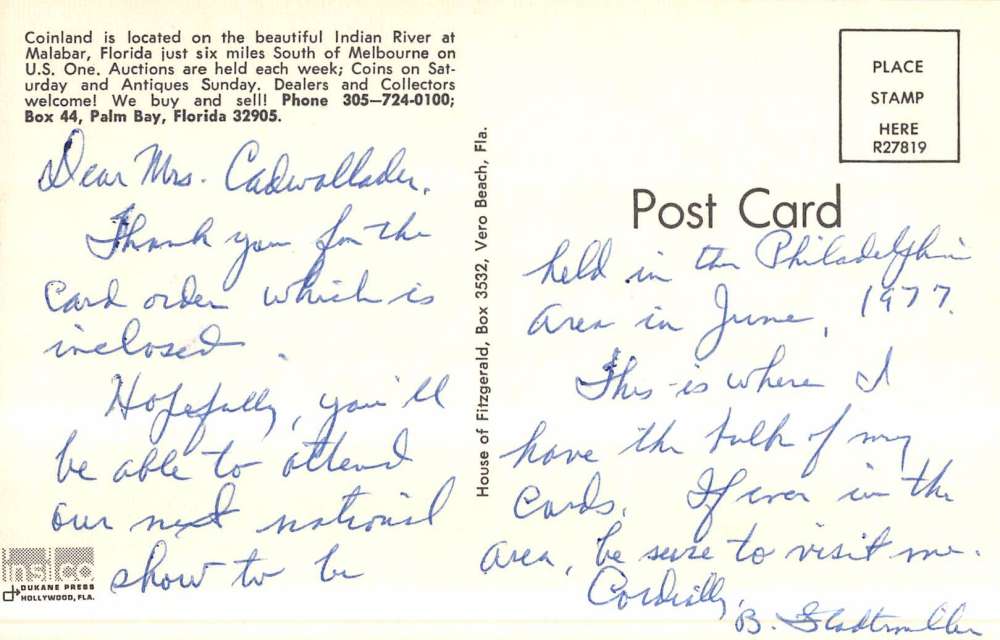 Coinland is located on the beautiful Indian River at
Malabar, Florida just six miles South of Melbourne on
U.S. One. Auctions are held each week; Coins on Sat-
urday and Antiques Sunday. Dealers and Collectors
welcome! We buy and sell! Phone 305—724-0100;
Box 44, Palm Bay, Florida 32905.
Dear Mrs. Cadwallader,
Thank you for the
card order which is
inclosed.
Hopefully, you'll
be able to attend
our next national
show to be
insco
DUKANE PRESS
HOLLYWOOD, FLA.
House of Fitzgerald, Box 3532, Vero Beach, Fla.
PLACE
STAMP
HERE
R27819
Post Card
held in the Philadelphia
area in June, 1977.
This is where I
have the bulk of my
cards. If ever in the
area, be sure to visit me.
Cordially,
B. Stadtmiller